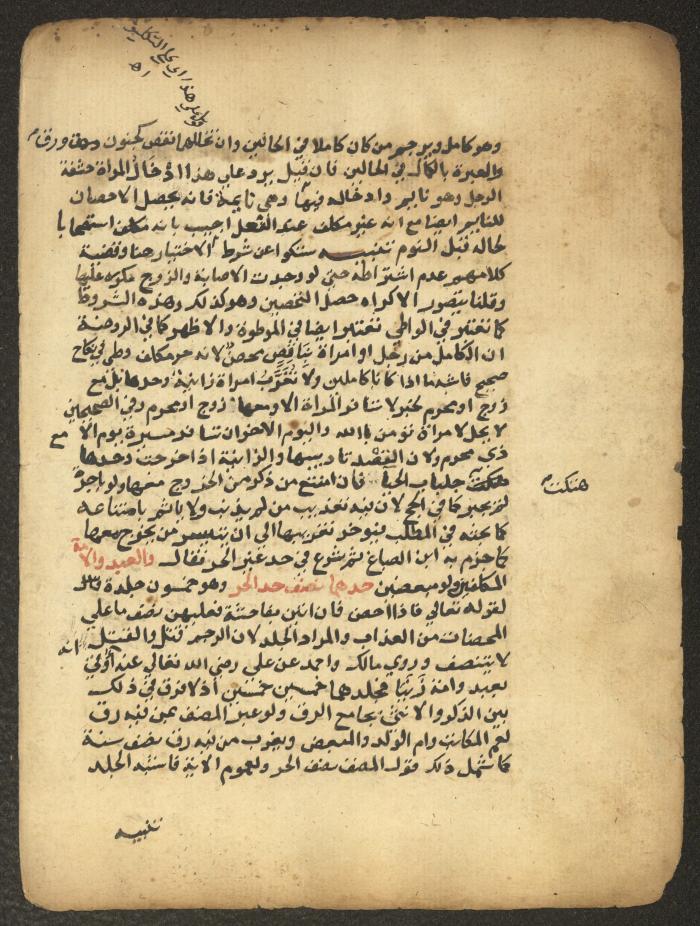 وهو كامل ويرجم من كان كاملا في الحالين وان تخللهما نقص كجنون ورق
والعبرة بالكمال في الحالين فان قيل يرد على هذا ادخال المراة حشفة
الرجل وهو نايم وادخاله فيها وهي نايمة فانه يحصل الاحصان
للنايم ايضا مع انه غير مكلف عند الفعل اجيب بانه مكلف استصحابا
لحاله قبل النوم تنبيه سكتوا عن شرط الاختيار هنا وقضية
كلامهم عدم اشتراطه حتى لو وجدت الاصابة والزوج مكره عليها
وقلنا يتصور الاكراه حصل التحصين وهو كذلك وهذه الشروط
كما تعتبر في الواطي تعتبر ايضا في الموطوة والاظهر كما في الروضة
ان الكامل من رجل او امراة بناقص محصن لانه حر مكلف وطي في نكاح
صحيح فاشبه ما اذا كانا كاملين ولا تغرب امراة زانية وحدها بل مع
زوج او محرم لخبر لا تسافر المراة الا ومعها زوج او محرم وفي الصحيحين
لا يحل لامراة تؤمن بالله واليوم الاخر ان تسافر مسيرة يوم الا مع
ذي محرم ولان القصد تاديبها والزانية اذا خرجت وحدها
هتكت جلباب الحيا فان امتنع من ذكر من الخروج معها ولو باجرة
لم يجبر كما في الحج لان فيه تعذيب من لم يذنب ولا ياثم بامتناعه
كما بحثه في المطلب فيؤخر تغريبها الى ان يتيسر من يخرج معها
كما جزم به ابن الصباغ ثم شرع في حد غير الحر فقال والعبد والامة
المكلفين ولو مبعضين حدهما نصف حد الحر وهو خمسون جلدة
لقوله تعالى فاذا احصن فان اتين بفاحشة فعليهن نصف ما على
المحصنات من العذاب والمراد الجلد لان الرجم قتل والقتل
لا يتنصف وروي مالك واحمد عن علي رضي الله تعالى عنه انه اؤتي
بعبد وامة زنيا فجلدهما خمسين خمسين اذ لا فرق في ذلك
بين الذكر والانثى بجامع الرق ولو عبر المصنف بمن فيه رق
لعم المكاتب وام الولد والمبعض ويغرب من فيه رق نصف سنة
كما شمل ذلك قول المصنف نصف الحر ولعموم الاية فاشبه الجلد
هتكت
تنبيه